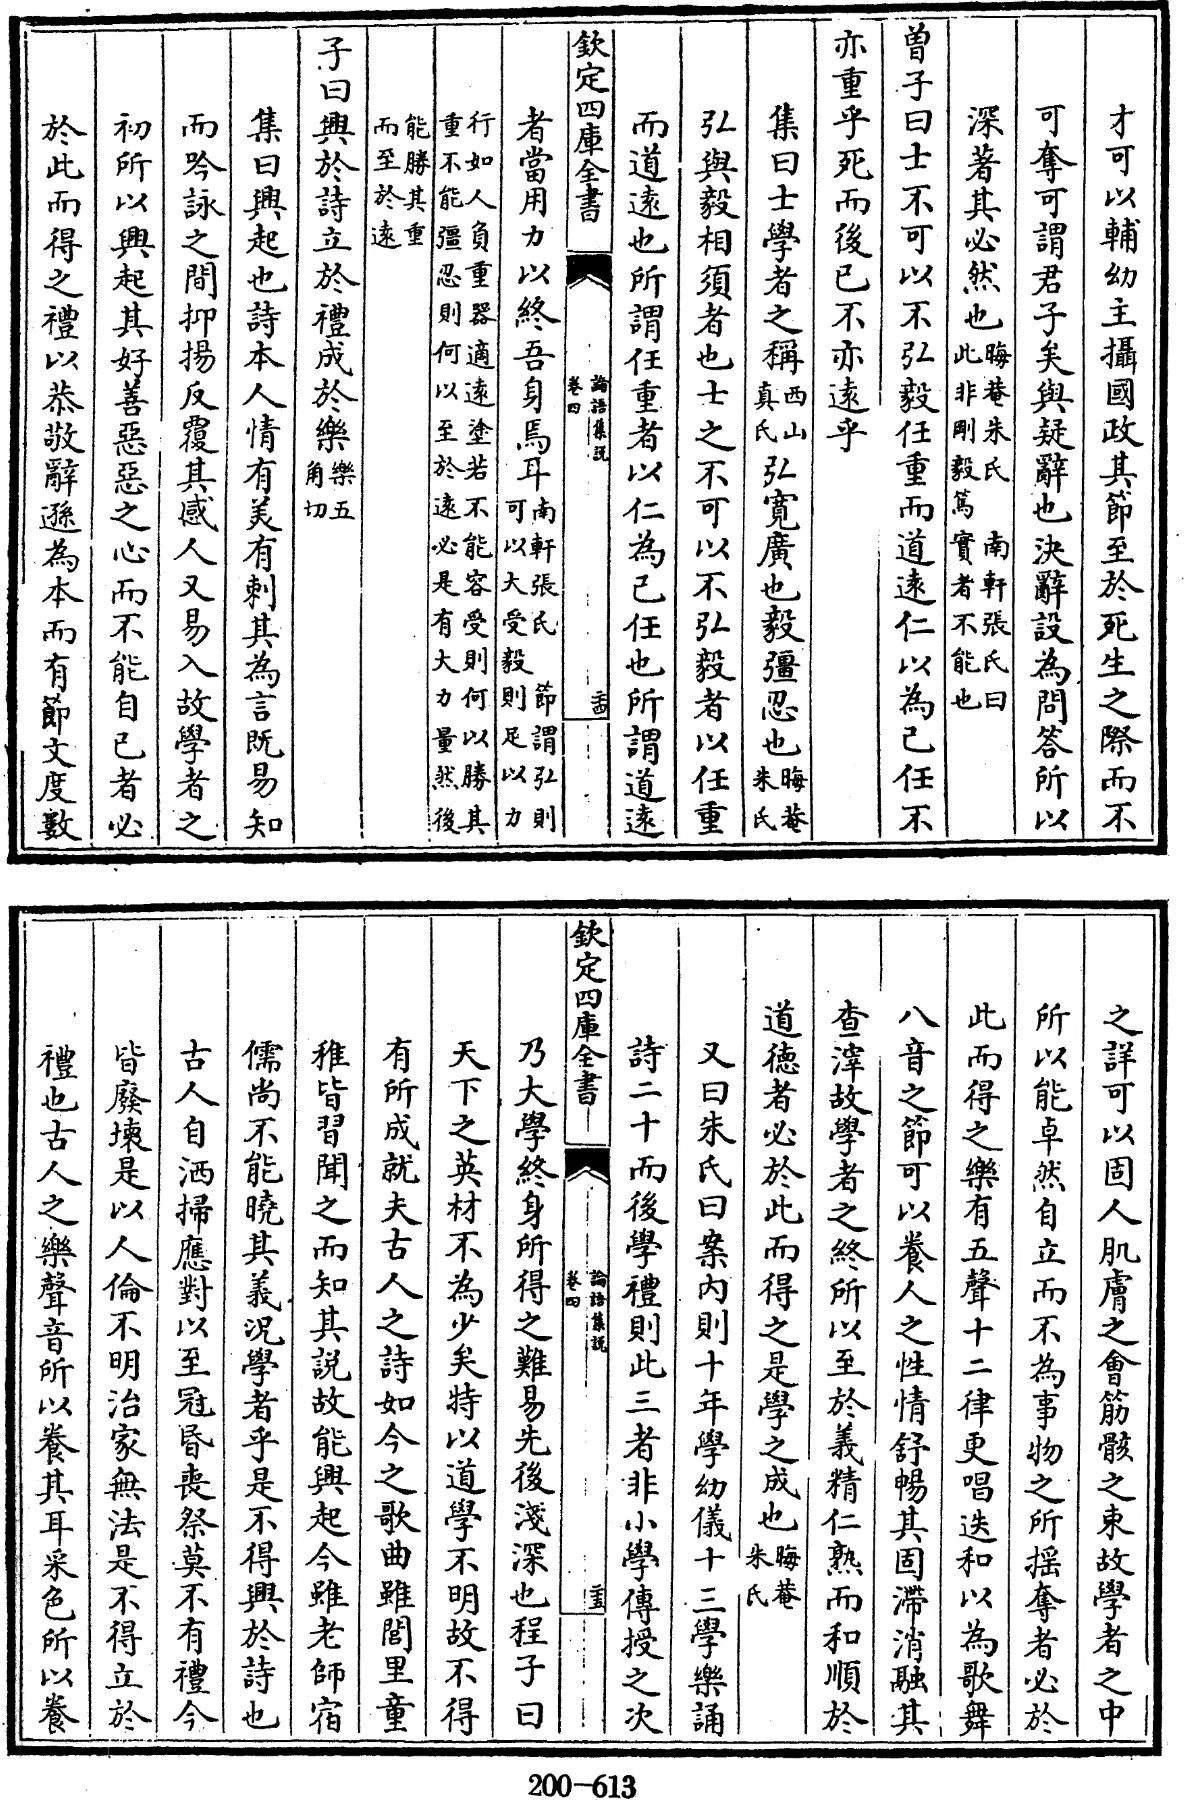 才可以輔幼主攝國政其節至於死生之際而不
可奪可謂君子矣與疑辭也決辭設為問答所以
深著其必然也晦菴朱氏 南軒張氏曰
此非剛毅篤實者不能也
曾子曰士不可以不弘毅任重而道遠仁以為己任不
亦重乎死而後已不亦遠乎
集曰士學者之稱西山
真氏弘寬廣也毅彊忍也晦菴
朱氏
弘與毅相須者也士之不可以不弘毅者以任重
而道遠也所謂任重者以仁為己任也所謂道遠
欽定四庫全書
論語集説
卷四
十四
者當用力以終吾身焉耳南軒張氏 節謂弘則
可以大受毅則足以力
行如人負重器適遠塗若不能容受則何以勝其
重不能彊忍則何以至於遠必是有大力量然後
能勝其重
而至於遠
子曰興於詩立於禮成於樂樂五
角切
集曰興起也詩本人情有美有刺其為言既易知
而吟詠之間抑揚反覆其感人又易入故學者之
初所以興起其好善惡惡之心而不能自已者必
於此而得之禮以恭敬辭遜為本而有節文度數
之詳可以固人肌膚之會筋骸之束故學者之中
所以能卓然自立而不為事物之所揺奪者必於
此而得之樂有五聲十二律更唱迭和以為歌舞
八音之節可以養人之性情舒暢其固滯消融其
查滓故學者之終所以至於義精仁熟而和順於
道德者必於此而得之是學之成也晦菴
朱氏
又曰朱氏曰案内則十年學幼儀十三學樂誦
詩二十而後學禮則此三者非小學傳授之次
欽定四庫全書
論語集説
卷四
十五
乃大學終身所得之難易先後淺深也程子曰
天下之英材不為少矣特以道學不明故不得
有所成就夫古人之詩如今之歌曲雖閭里童
稚皆習聞之而知其説故能興起今雖老師宿
儒尚不能曉其義況學者乎是不得興於詩也
古人自洒掃應對以至冠昏喪祭莫不有禮今
皆廢壞是以人倫不明治家無法是不得立於
禮也古人之樂聲音所以養其耳采色所以養
200-613